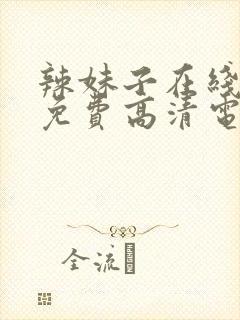 辣妹子在线
免费高清电
全流